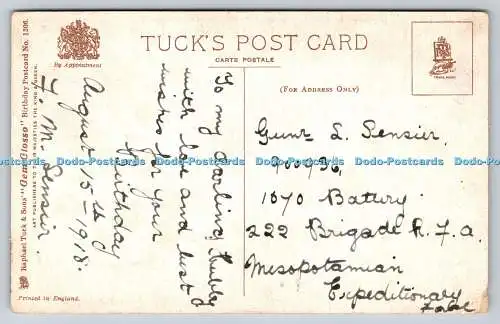 TUCK'S POST CARD
CARTE POSTALE
By Appointment
(FOR ADDRESS ONLY)
TRADE MARK
Raphael Tuck & Sons' "Gem Glosso" Birthday Postcard No. 1306.
ART PUBLISHERS TO THEIR MAJESTIES THE KING & QUEEN.
Printed in England.
To my darling hubby
with love and best
wishes for your
Birthday
August 15th 1918.
M. Sensier.
Gunr L. Sensier
1070 Battery
222 Brigade R.F.A.
Mesopotamian
Expeditionary
Force
Dodo-Postcards Dodo-Postcards Dodo-Postcards Dodo-Postcards Dodo-Postcards